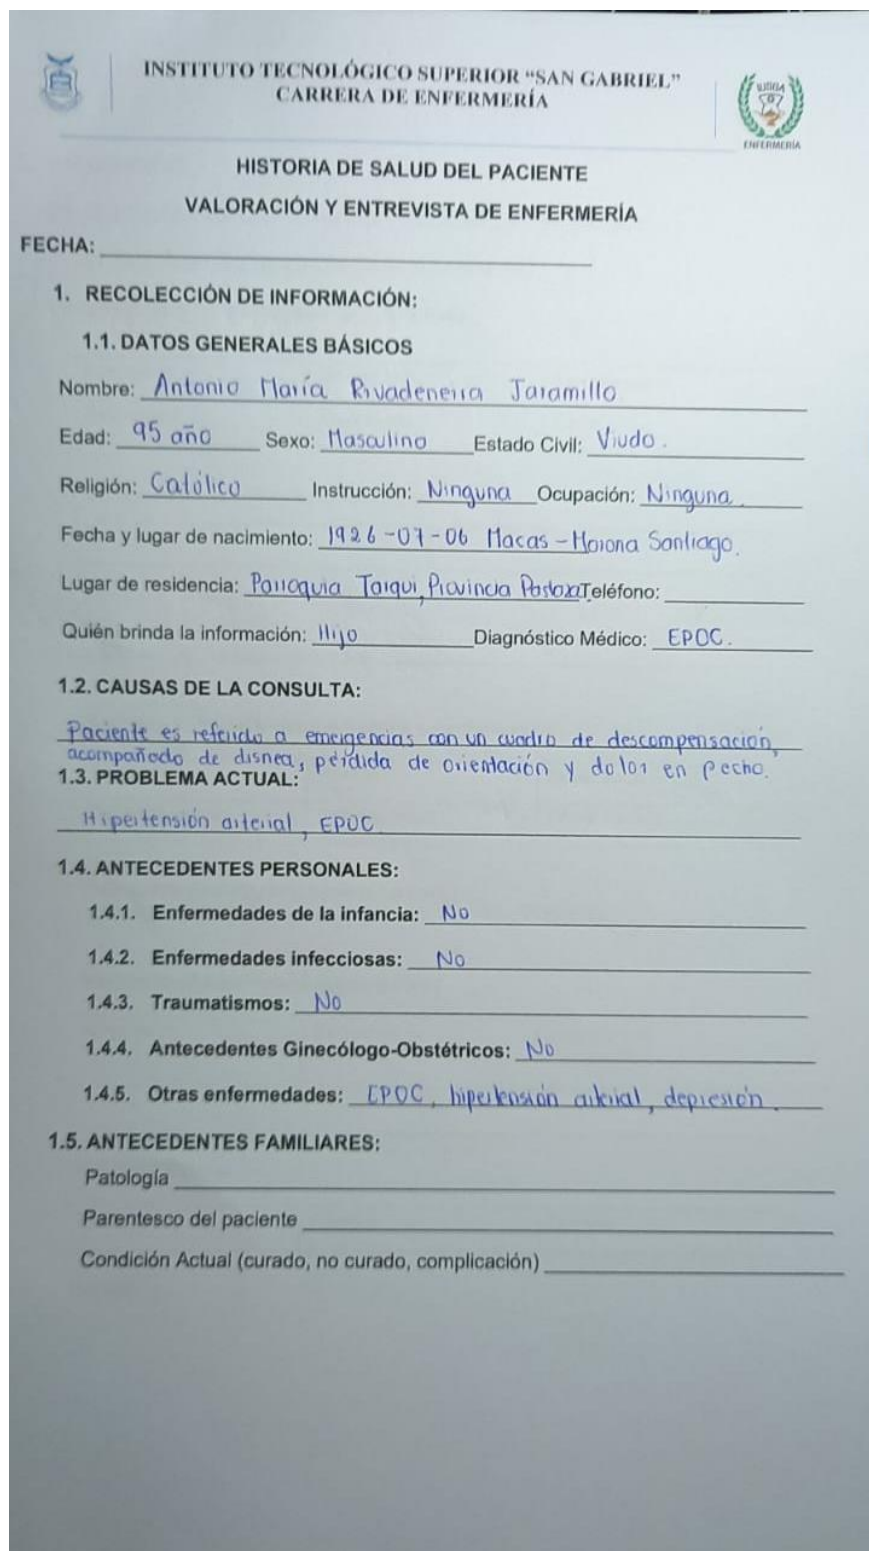 INSTITUTO TECNOLÓGICO SUPERIOR “SAN GABRIEL”
CARRERA DE ENFERMERÍA
ENFERMERÍA
HISTORIA DE SALUD DEL PACIENTE
VALORACIÓN Y ENTREVISTA DE ENFERMERÍA
FECHA:
1. RECOLECCIÓN DE INFORMACIÓN:
1.1. DATOS GENERALES BÁSICOS
Nombre: Antonio María Rivadeneira Jaramillo
Edad: 95 año Sexo: Masculino Estado Civil: Viudo.
Religión: Católico Instrucción: Ninguna Ocupación: Ninguna.
Fecha y lugar de nacimiento: 1926-07-06 Macas-Morona Santiago.
Lugar de residencia: Parroquia Tarqui, Provincia Pastaza Teléfono:
Quién brinda la información: Hijo Diagnóstico Médico: EPOC.
1.2. CAUSAS DE LA CONSULTA:
Paciente es referido a emergencias con un cuadro de descompensación,
acompañado de disnea, pérdida de orientación y dolor en pecho.
1.3. PROBLEMA ACTUAL:
Hipertensión arterial, EPOC
1.4. ANTECEDENTES PERSONALES:
1.4.1. Enfermedades de la infancia: No
1.4.2. Enfermedades infecciosas: No
1.4.3. Traumatismos: No
1.4.4. Antecedentes Ginecólogo-Obstétricos: No
1.4.5. Otras enfermedades: EPOC, hipertensión arterial, depresión.
1.5. ANTECEDENTES FAMILIARES:
Patología
Parentesco del paciente
Condición Actual (curado, no curado, complicación)